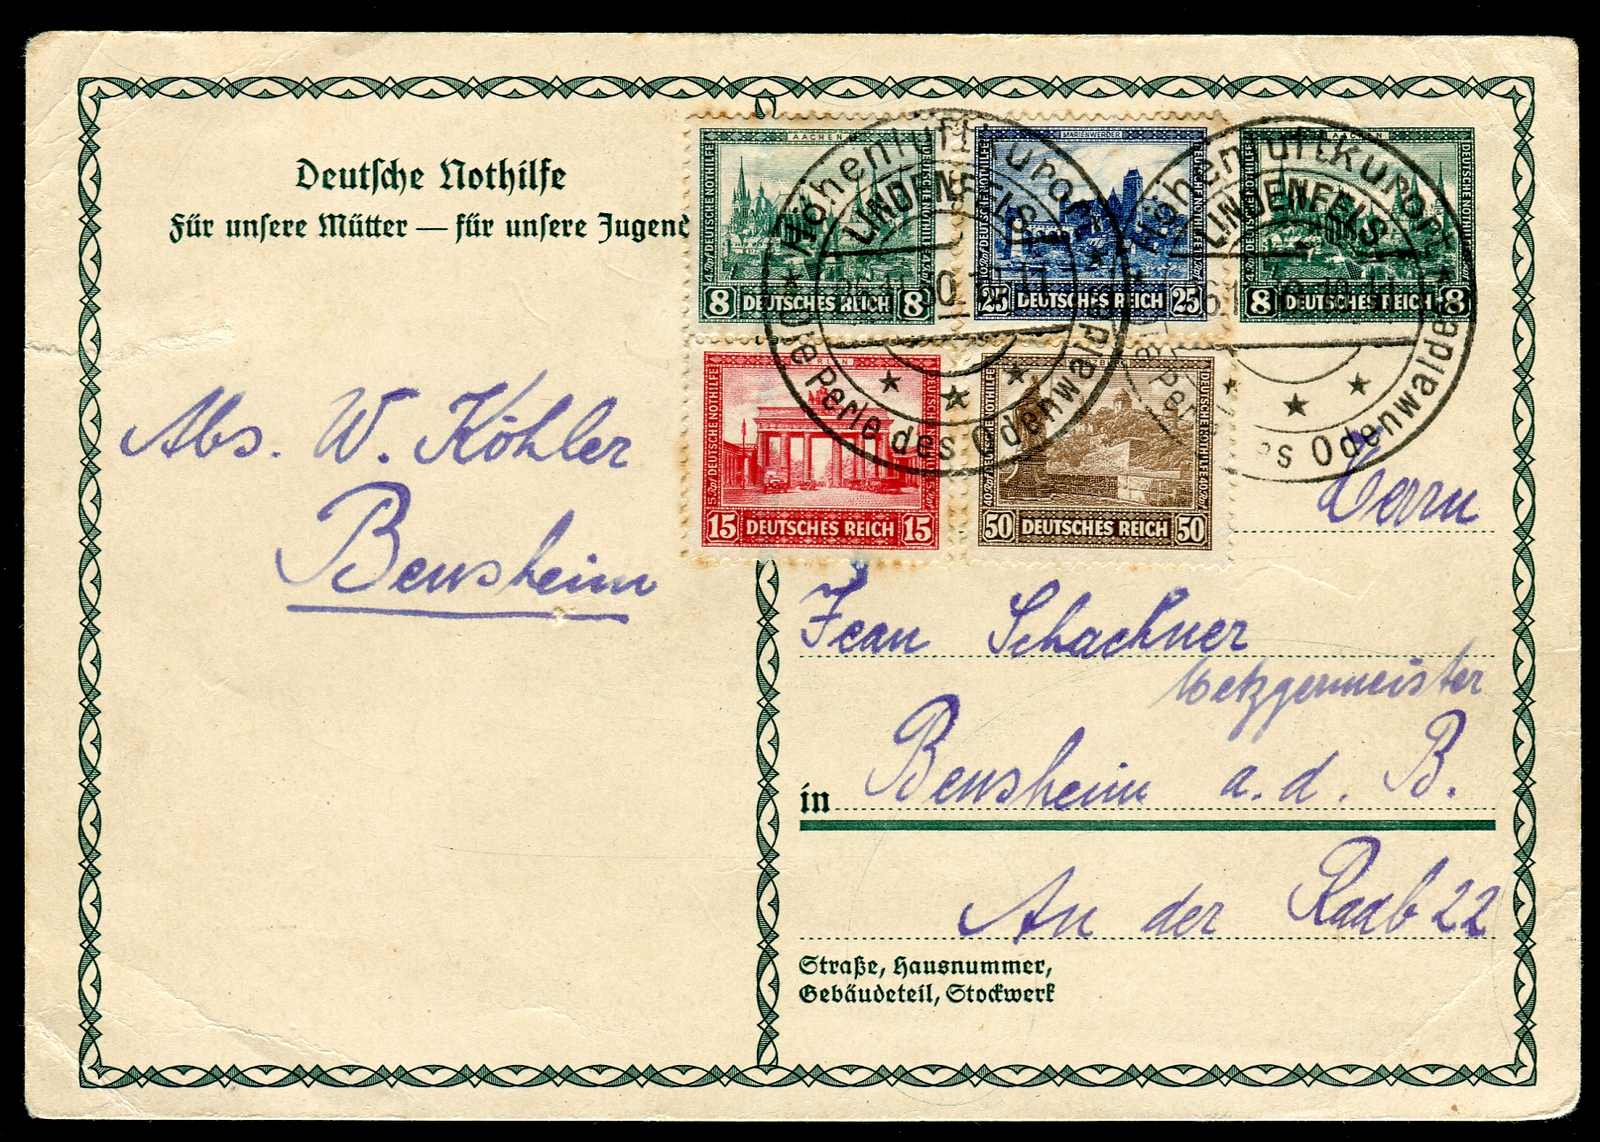 Deutsche Nothilfe
Für unsere Mütter — für unsere Jugend
AACHEN
DEUTSCHE NOTHILFE
8 DEUTSCHES REICH 8
MARIENWERDER
DEUTSCHE NOTHILFE
25 DEUTSCHES REICH 25
AACHEN
8 DEUTSCHES REICH 8
DEUTSCHE NOTHILFE
15 DEUTSCHES REICH 15
DEUTSCHE NOTHILFE
50 DEUTSCHES REICH 50
Höhenluftkurort
LINDENFELS
Die Perle des Odenwaldes
Höhenluftkurort
LINDENFELS
des Odenwaldes
Abs. W. Köhler
Bensheim
Herrn
Jean Schachner
Metzgermeister
in Bensheim a. d. B.
An der Raab 22
Straße, Hausnummer,
Gebäudeteil, Stockwerk